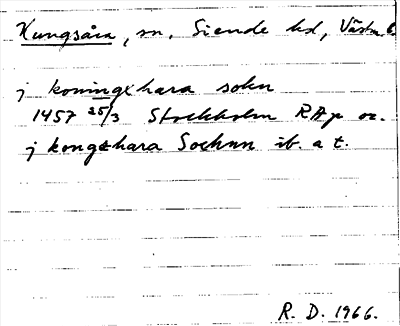 Kungsåra, sn. Siende hd, Västm
j koningxhara sokn
1457 25/3 Stockholm RAp or.
j kongxhara Sochnn ib. a t.
R. D. 1966.